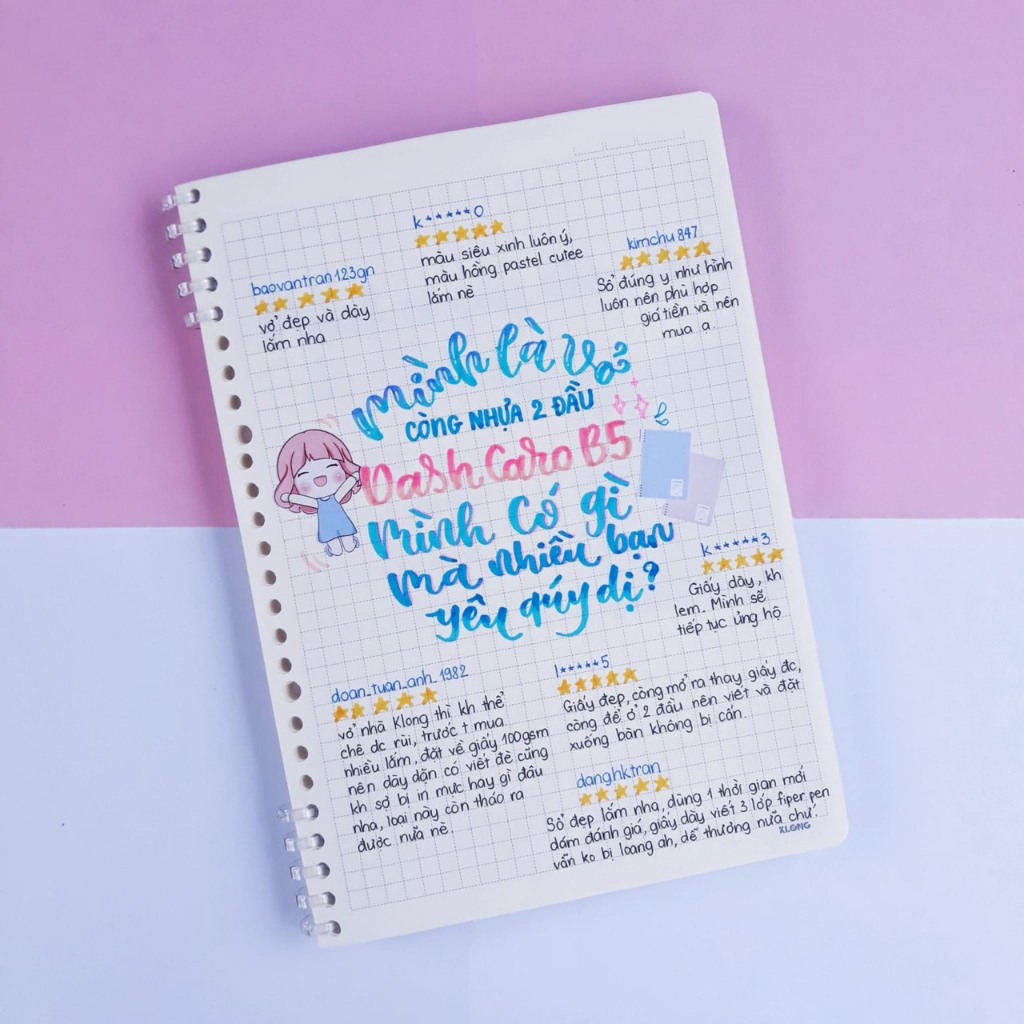 k*****0
màu siêu xinh luôn ý,
màu hồng pastel cutee
lắm nè
baovantran123gn
vở đẹp và dày
lắm nha
kimchu847
Sổ đúng y như hình
luôn nên phù hợp
giá tiền và nên
mua ạ.
Mình là Vở
CÒNG NHỰA 2 ĐẦU
Dash Caro B5
Mình Có gì
mà nhiều bạn
yêu qúy dị?
k*****3
Giấy dày, kh
lem. Mình sẽ
tiếp tục ủng hộ
doan_tuan_anh_1982
vở nhà Klong thì kh thể
chê dc rùi, trước t mua
nhiều lắm, đặt về giấy 100gsm
nên dày dặn có viết đè cũng
kh sợ bị in mực hay gì đâu
nha, loại này còn tháo ra
được nữa nè.
l*****5
Giấy đẹp, còng mở ra thay giấy đc,
còng để ở 2 đầu nên viết và đặt
xuống bàn không bị cấn.
danghktran
Sổ đẹp lắm nha, dùng 1 thời gian mới
dám đánh giá, giấy dày viết 3 lớp fiper pen
vẫn ko bị loang ah, dễ thương nữa chứ.
KLONG